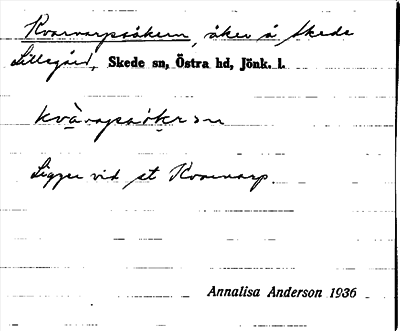 Kvarnarpsåkern, åker å Skede
Lillegård, Skede sn, Östra hd, Jönk. l.
Ligger vid st Kvarnarp.
Annalisa Anderson 1936